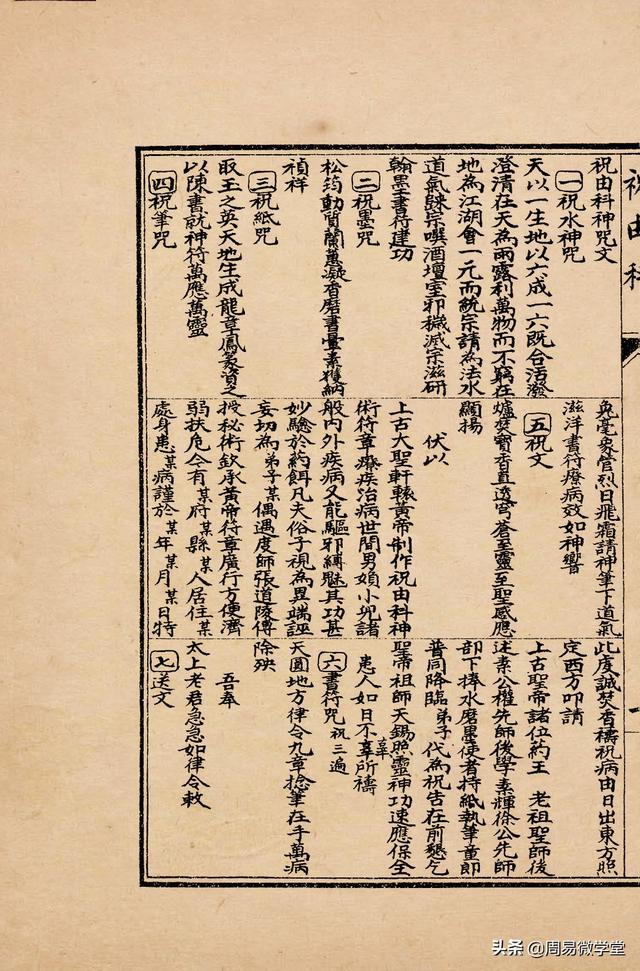 祝由科
祝由科神咒文
一 祝水神咒
天以一生地以六成一六既合污潑
澄清在天為雨露利萬物而不窮在
地為江湖會一元而統宗請為法水
道氣疎宗噗酒壇室邪穢滅宗滋研
翰墨書符建功
二 祝墨咒
松筠動質蘭蕙凝香磨書暈素獲納
禎祥
三 祝紙咒
取玉之英天地生成龍章鳳篆資之
以陳書就神符萬應萬靈
四 祝筆咒
兔毫象管烈日飛霜請神筆下道氣
滋洋書符療病效如神響
五 祝文
爐焚寶香直透穹蒼至靈至聖感應
顯揚
伏以
上古大聖軒轅黃帝制作祝由科神
術符章療疾治病世間男婦小兒諸
般內外疾病又能驅邪縛魅其功甚
妙驗於約餌凡夫俗子視為異端誣
妄切為弟子某偶遇度師張道陵傳
授秘術欽承黃帝符章廣行方便濟
弱扶危今有某府某縣某人居住某
處身患某病謹於某年某月某日特
此虔誠焚香禱祝病由日出東方照
定西方叩請
上古聖帝諸位約王 老祖聖師後
述素公權先師後學素輝徐公先師
部下捧水磨墨使者持紙執筆童郎
普同降臨弟子代為祝告在前懇乞
聖帝祖師天錫照靈神功速應保全
患人如日不辜所禱
辜
六 書符咒 祝三遍
天圓地方律令九章捻筆在手萬病
除殃
吾奉
太上老君急急如律令敕
七 送文
头条 @周易微学堂